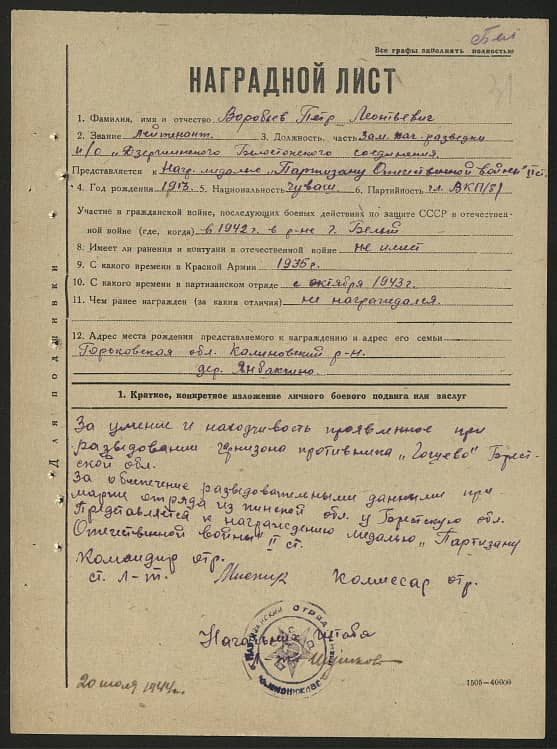 Бел
Все графы заполнять полностью
31
НАГРАДНОЙ ЛИСТ
1. Фамилия, имя и отчество Воробьев Петр Леонтьевич
2. Звание Лейтенант. 3. Должность, часть Зам. нач. разведки
п/о „Дзержинского Белостокского соединения.
Представляется к Нагр. медалью „Партизану Отечественной войны" II ст.
4. Год рождения 1913. 5. Национальность чуваш 6. Партийность чл. ВКП/б/
Участие в гражданской войне, последующих боевых действиях по защите СССР в отечествен-
ной войне (где, когда) в 1942г. в р-не г. Белый
8. Имеет ли ранения и контузии в отечественной войне не имеет
9. С какого времени в Красной Армии 1935г.
10. С какого времени в партизанском отряде с октября 1943г.
11. Чем ранее награжден (за какия отличия) не награждался.
12. Адрес места рождения представляемого к награждению и адрес его семьи
Горьковская обл. Калиновский р-н.
дер. Янбактино.
Для подшивки
1. Краткое, конкретное изложение личного боевого подвига или заслуг
За умение и находчивость проявленное при
разведовании гарнизона противника „Гощево" Брест-
ской обл.
За обеспечение разведовательными данными при
марше отряда из пинской обл. у Брестскую обл.
Представляется к награждению медалью „Партизану
Отечественной войны" II ст.
Командир отр.
ст. л-т. Комиссар отр.
Начальник Штаба
ПАРТИЗАНСКИЙ ОТРЯД
20 июля 1944г.
1505—40000